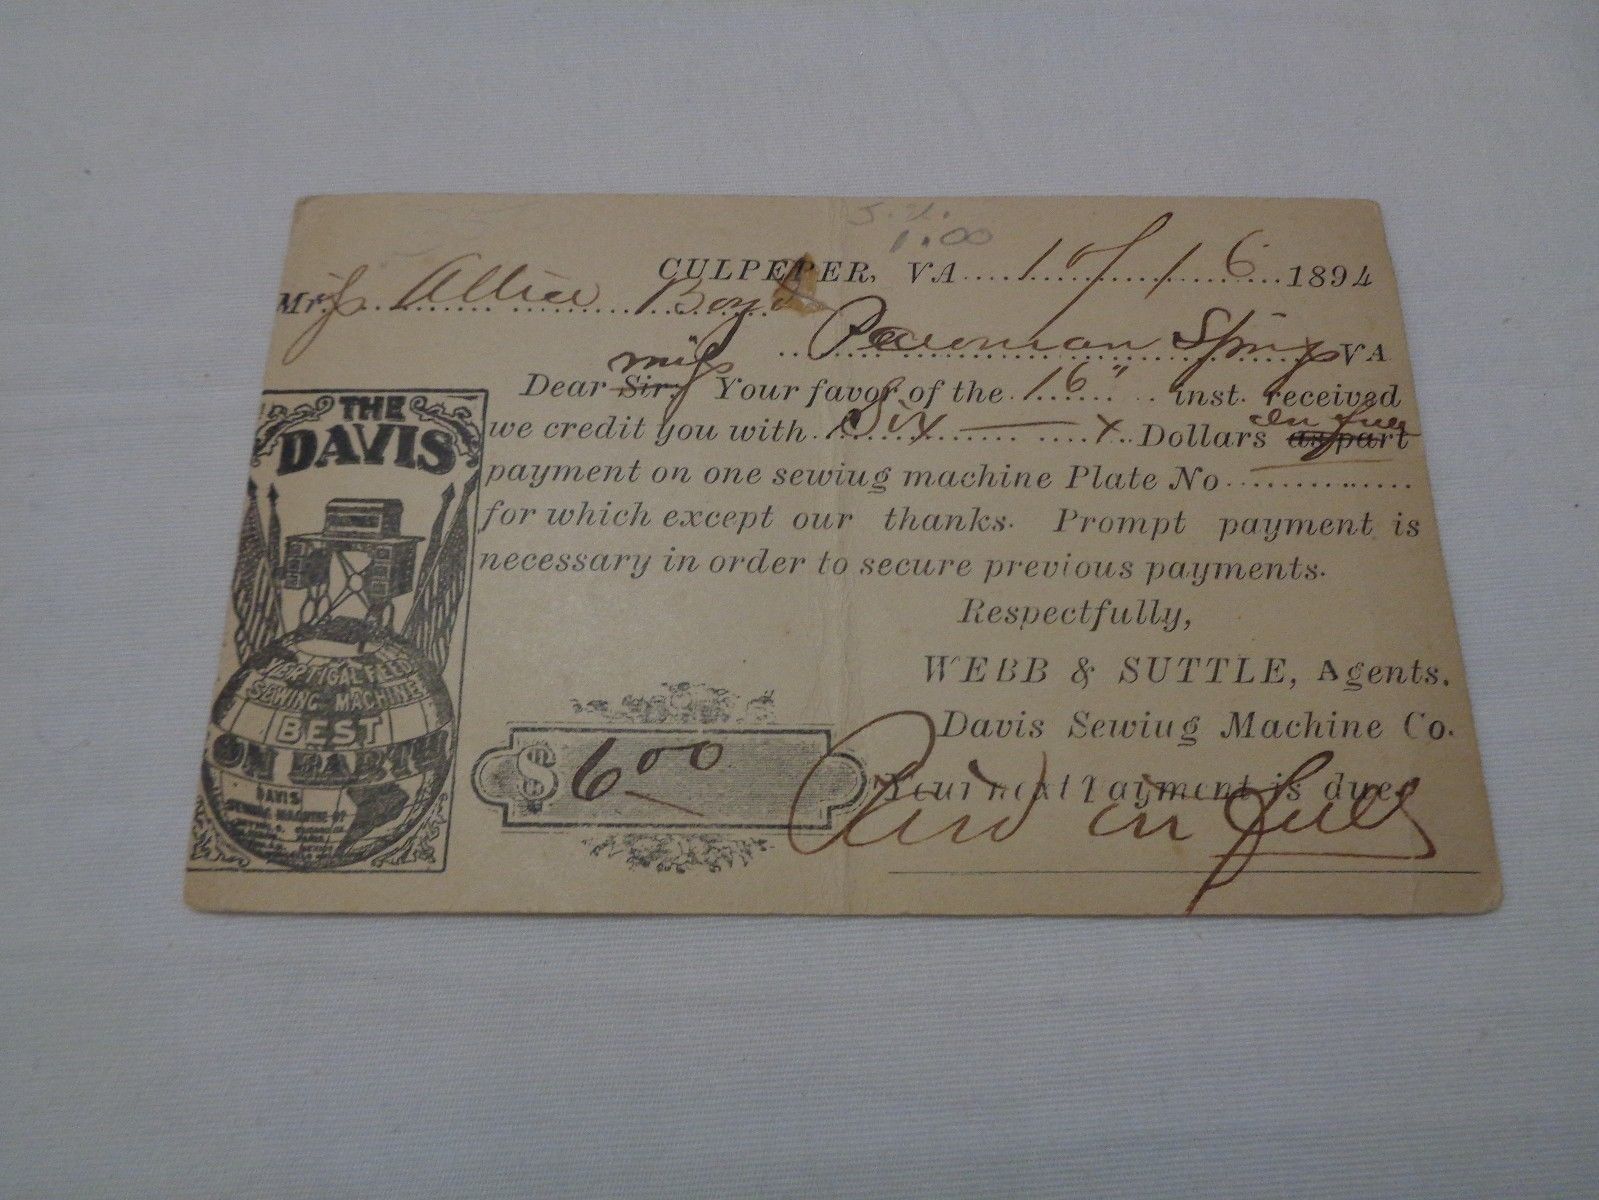 1.00
CULPEPER, VA.....10/16....1894
Mrs. Allice Boyd
Spring VA
Dear Sir. miss Your favor of the 16" inst. received
we credit you with Six — x Dollars as part In full
payment on one sewiug machine Plate No..............
for which except our thanks. Prompt payment is
necessary in order to secure previous payments.
Respectfully,
WEBB & SUTTLE, Agents.
Davis Sewiug Machine Co.
Your next Payment is due
Paid in full
$ 6 00
THE
DAVIS
VERTICAL FEED
SEWING MACHINE
BEST
ON EARTH
DAVIS
SEWING MACHINE CO